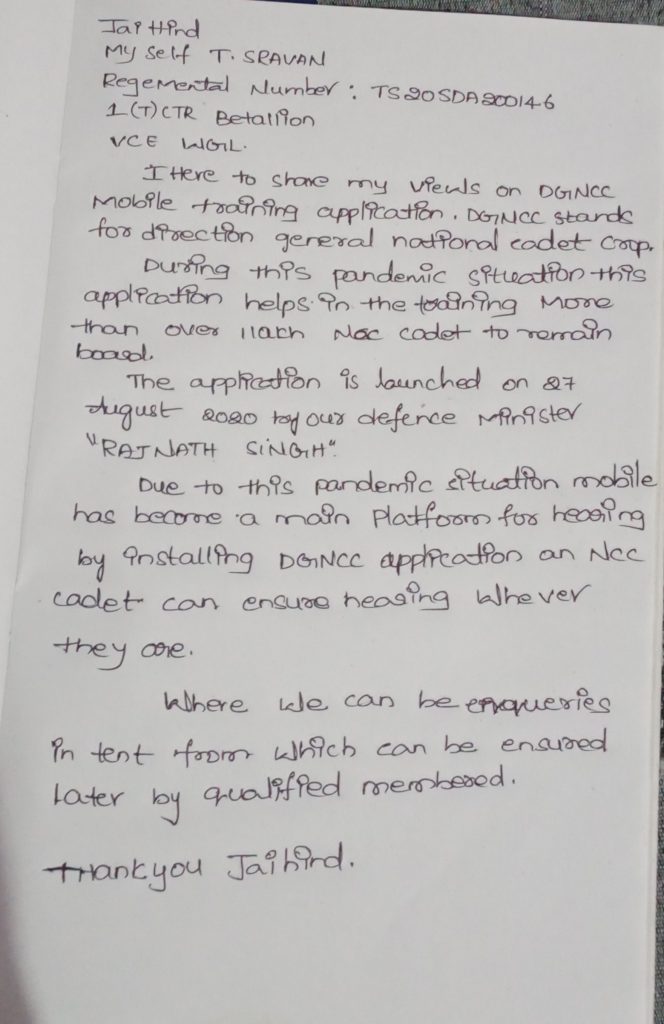 Jai Hind
My self T. SRAVAN
Regemental Number : TS20SDA200146
1(T)CTR Betallion
VCE WGL.
I Here to share my views on DGNCC
Mobile training application. DGNCC stands
for direction general national cadet Corp.
During this pandemic situation this
application helps in the training More
than over 1lach Ncc cadet to remain
board.
The application is launched on 27
August 2020 by our defence Minister
"RAJNATH SINGH"
Due to this pandemic situation mobile
has become a main Platform for hearing
by installing DGNCC application an Ncc
cadet can ensure hearing Whever
they are.
Where We can be enqueries
in tent from Which can be ensured
Later by qualified membered.
Thankyou Jaihind.